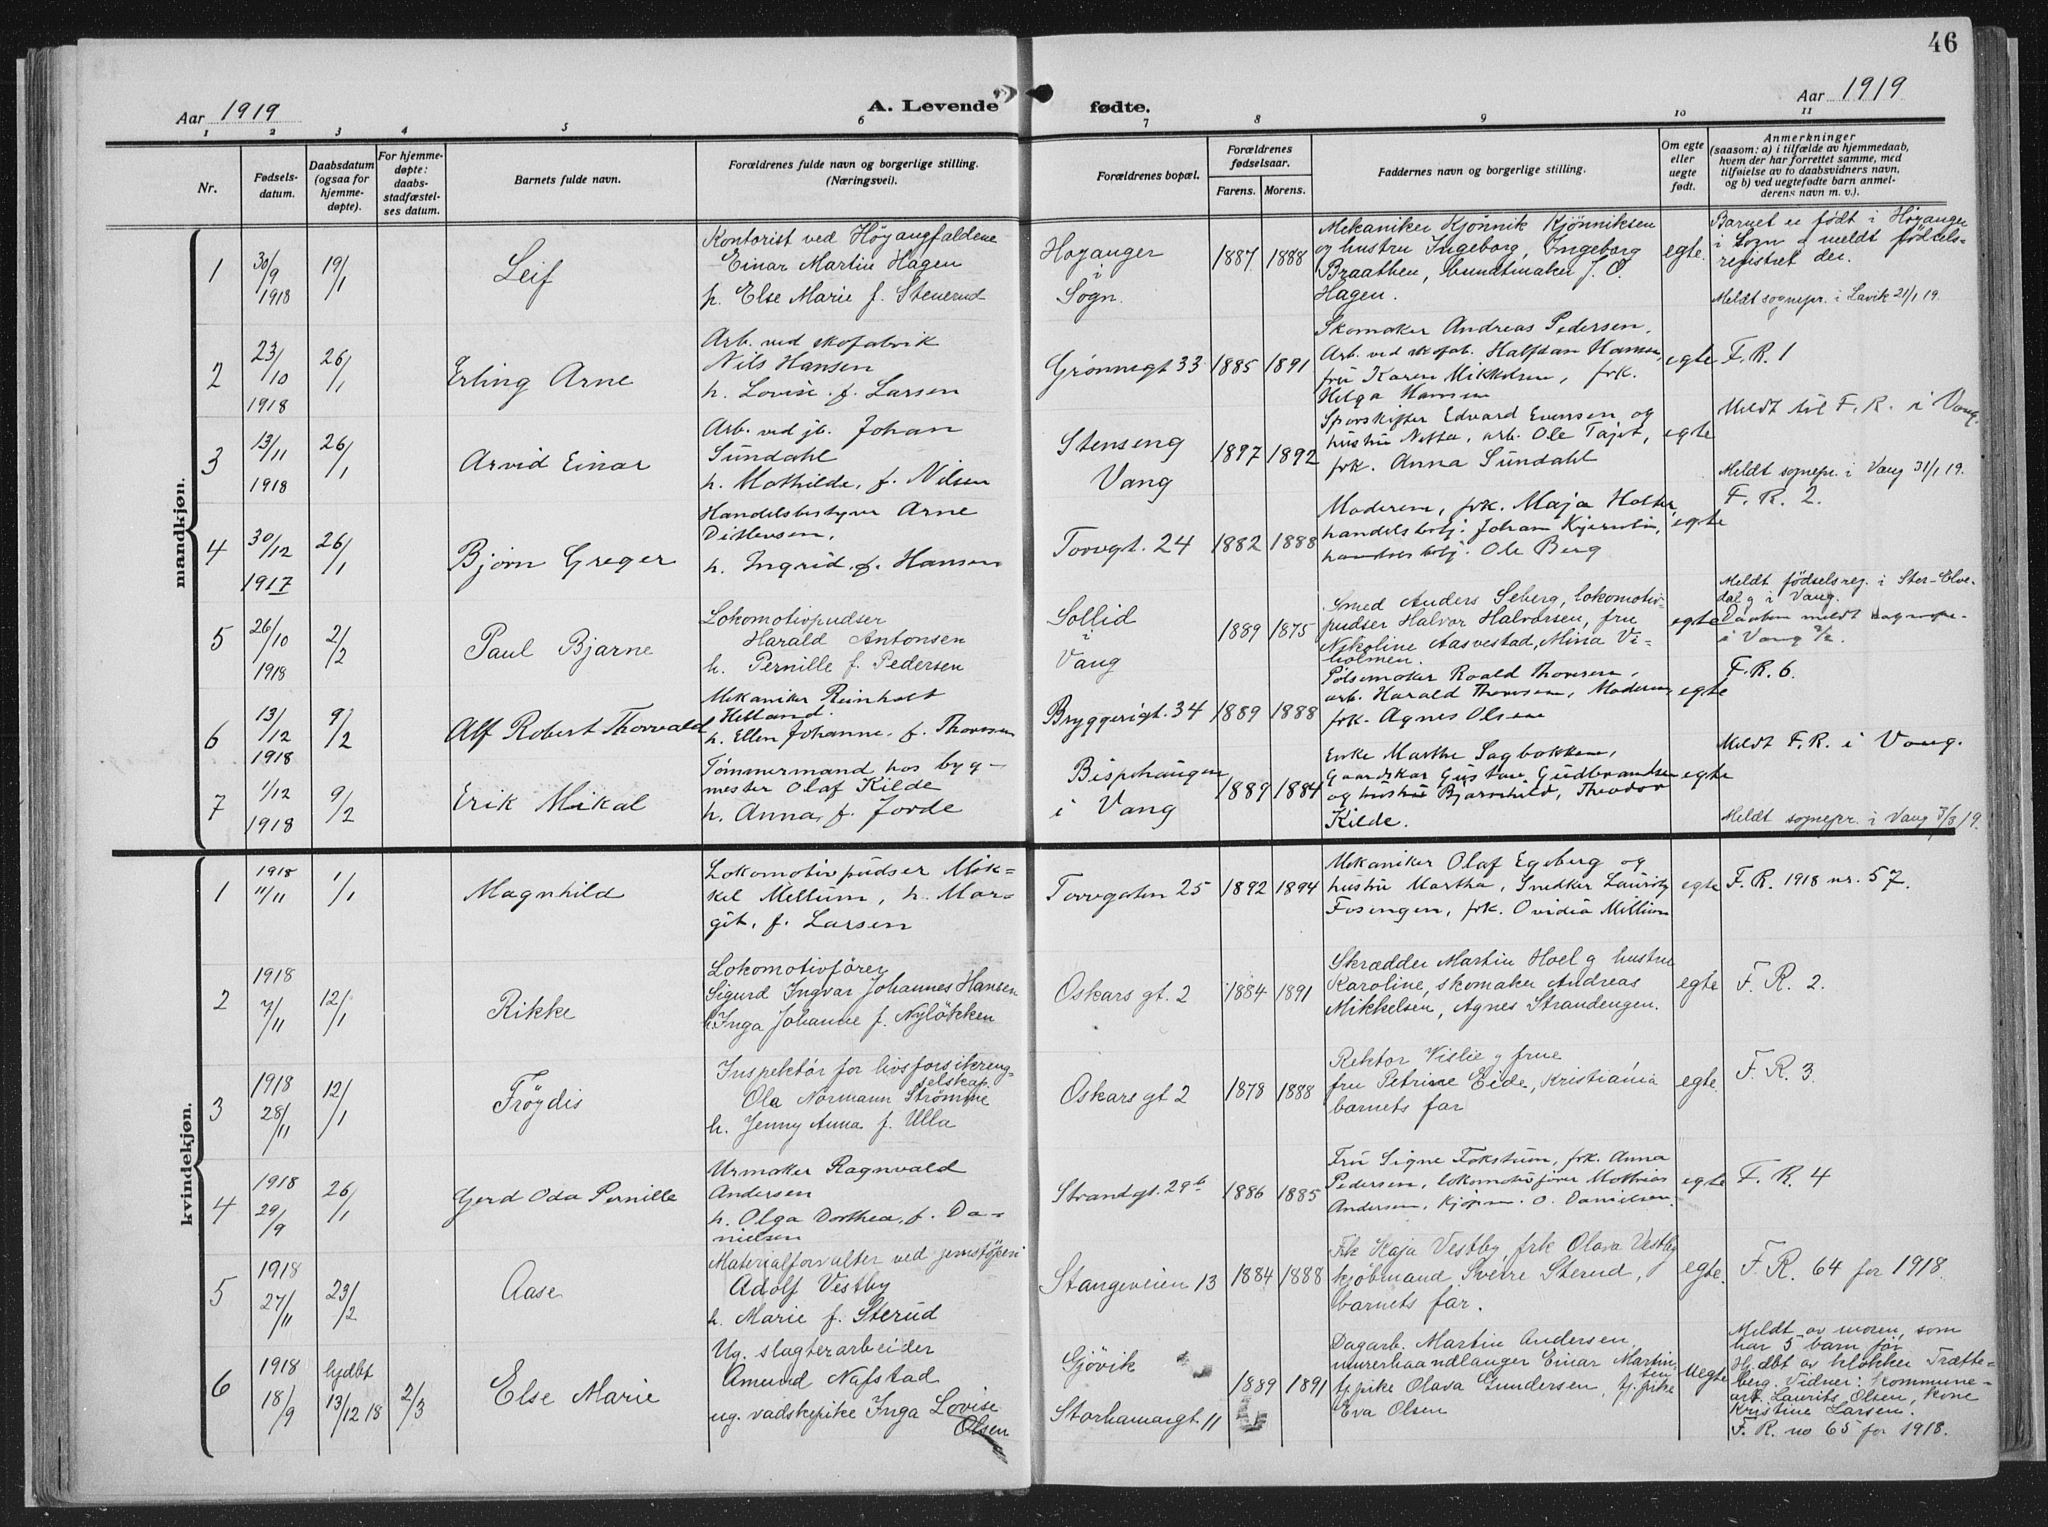 46
Aar 1919
A. Levende fødte.
Aar 1919
1 2 3 4 5 6 7 8 9 10 11
Nr.
Fødsels-
datum.
Daabsdatum
(ogsaa for
hjemme-
døpte).
For hjemme-
døpte:
daabs-
stadfæstel-
ses datum.
Barnets fulde navn.
Forældrenes fulde navn og borgerlige stilling.
(Næringsvei).
Forældrenes bopæl.
Forældrenes
fødselsaar.
Farens. Morens.
Faddernes navn og borgerlige stilling.
Om egte
eller
uegte
født.
Anmerkninger
(saasom: a) i tilfælde av hjemmedaab,
hvem der har forrettet samme, med
tilføielse av to daabsvidners navn,
og b) ved uegtefødte barn anmel-
derens navn m. v.).
mandkjøn.
1
30/9
1918
19/1
Leif
Kontorist ved Høyangfaldene
Einar Martin Hagen
h. Else Marie f. Stenerud
Høyanger
i
Sogn.
1887 1888
Mekaniker Kjønnik Kjønniksen
og hustru Ingeborg, Ingeborg
Braathen, buntmaker J. O.
Hagen.
egte.
Barnet er født i Høyanger
i Sogn o meldt fødsels-
registret der.
Meldt sognepr. i Lavik 21/1 19.
2
23/10
1918
26/1
Erling Arne
Arb. ved skofabrik
Nils Hansen
h. Lovise f. Larsen
Grønnegt 33
1885 1891
Skomaker Andreas Pedersen,
Arb. ved skofab. Halfdan Hansen,
fru Karen Mikkelsen, frk.
Helga Hansen
egte
F. R. 1
3
13/11
1918
26/1
Arvid Einar
Arb. ved jb. Johan
Sundahl
h. Mathilde, f. Nilsen
Stenseng
Vang
1897 1892
Sporskifter Edvard Evensen og
hustru Netta, arb. Ole Tajet,
frk. Anna Sundahl
egte
Meldt til F. R. i Vang.
Meldt sognepr. i Vang 31/1 19.
4
30/12
1917
26/1
Bjørn Greger
Handelsbestyrer Arne
Ditlevsen,
h. Ingrid f. Hansen
Torvgt. 24
1882 1888
Moderen, frk. Maja Holter,
handelsbetj. Johan Kjernlin,
handelsbetj. Ole Berg
egte
F. R. 2.
5
26/10
1918
2/2
Paul Bjarne
Lokomotivpudser
Harald Antonsen
h. Pernille f. Pedersen
Sollid
i
Vang
1889 1875
Smed Anders Seberg, lokomotiv-
pudser Halvor Halvorsen, fru
Nikoline Aasvestad, Mina Vi-
holmen.
egte
Meldt fødselsreg. i Stor-Elve-
dal g i Vang.
Daaben meldt sognepr.
i Vang
6
13/12
1918
9/2
Alf Robert Thorvald
Mekaniker Reinholt
Helland.
h. Ellen Johanne, f. Thoresen
Bryggerigt. 34
1889 1888
Pølsemaker Roald Thoresen,
arb. Harald Thoresen, Moderen,
frk. Agnes Olsen
egte
F. R. 6.
7
1/12
1918
9/2
Erik Mikal
Tømmermand hos byg-
mester Olaf Kilde
h. Anna, f. Jorde
Bispehaugen
i Vang
1889 1884
Enke Marthe Sagbakken,
Gaardskar Gustav Gudbrandsen
og hustru Bjarnhild, Theodor
Kilde.
egte
Meldt F. R. i Vang.
Meldt sognepr. i Vang 3/3 19.
kvindekjøn.
1
1918
11/11
1/1
Magnhild
Lokomotivpudser Mik-
kel Mellum, h. Mar-
git, f. Larsen
Torvgaten 25
1892 1894
Mekaniker Olaf Egeberg og
hustru Martha, Snedker Lauritz
Fosengen, frk. Ovidia Millum
egte
F. R. 1918 nr. 57.
2
1918
7/11
12/1
Rikke
Lokomotivfører
Sigurd Ingvar Johannes Hansen
h. Inga Johanne f. Nyløkken
Oskars gt. 2
1884 1891
Skrædder Martin Hoel g hustru
Karoline, skomaker Andreas
Mikkelsen, Agnes Strandengen.
egte
F. R. 2.
3
1918
28/11
12/1
Frøydis
Inspektør for livsforsikrings-
selskap.
Ola Normann Strømme
h. Jenny Anna f. Ulla
Oskars gt 2
1878 1888
Rektor Vislie g frue
fru Petrine Eide, Kristiania
barnets far
egte
F. R. 3.
4
1918
29/9
26/1
Gerd Oda Pernille
Urmaker Ragnvald
Andersen
h. Olga Dorthea, f. Da-
nielsen
Strandgt. 29b
1886 1885
Fru Signe Fokstuen, frk. Anna
Pedersen, lokomotivfører Mathias
Andersen, kjøpm. O. Danielsen.
egte
F. R. 4
5
1918
27/11
23/2
Aase
Materialforvalter ved jernstøperi
Adolf Vestby
h. Marie f. Sterud
Stangeveien 13
1884 1888
Frk Kaja Vestby, frk Olava Vestby
kjøbmand Sverre Sterud,
barnets far.
egte.
F. R. 64 for 1918.
6
1918
18/9
hjdbt
13/12 18
2/3
Else Marie
Ug. slagterarbeider
Amund Nafstad
ug. vadskepike Inga Lovise
Olsen
Gjøvik
Storhamargt. 11
1889 1891
Dagarb. Martin Andersen
murerhaandlanger Einar Martin-
sen
tj.pike Olava Gundersen, tj. pike
Eva Olsen
Uegte
Meldt av moren, som
har 5 barn før
Hj.dbt av klokker Trætte-
berg. Vidner: Kommune-
arb. Laurits Olsen, kone
Kristine Larsen.
F. R. no 65 for 1918.